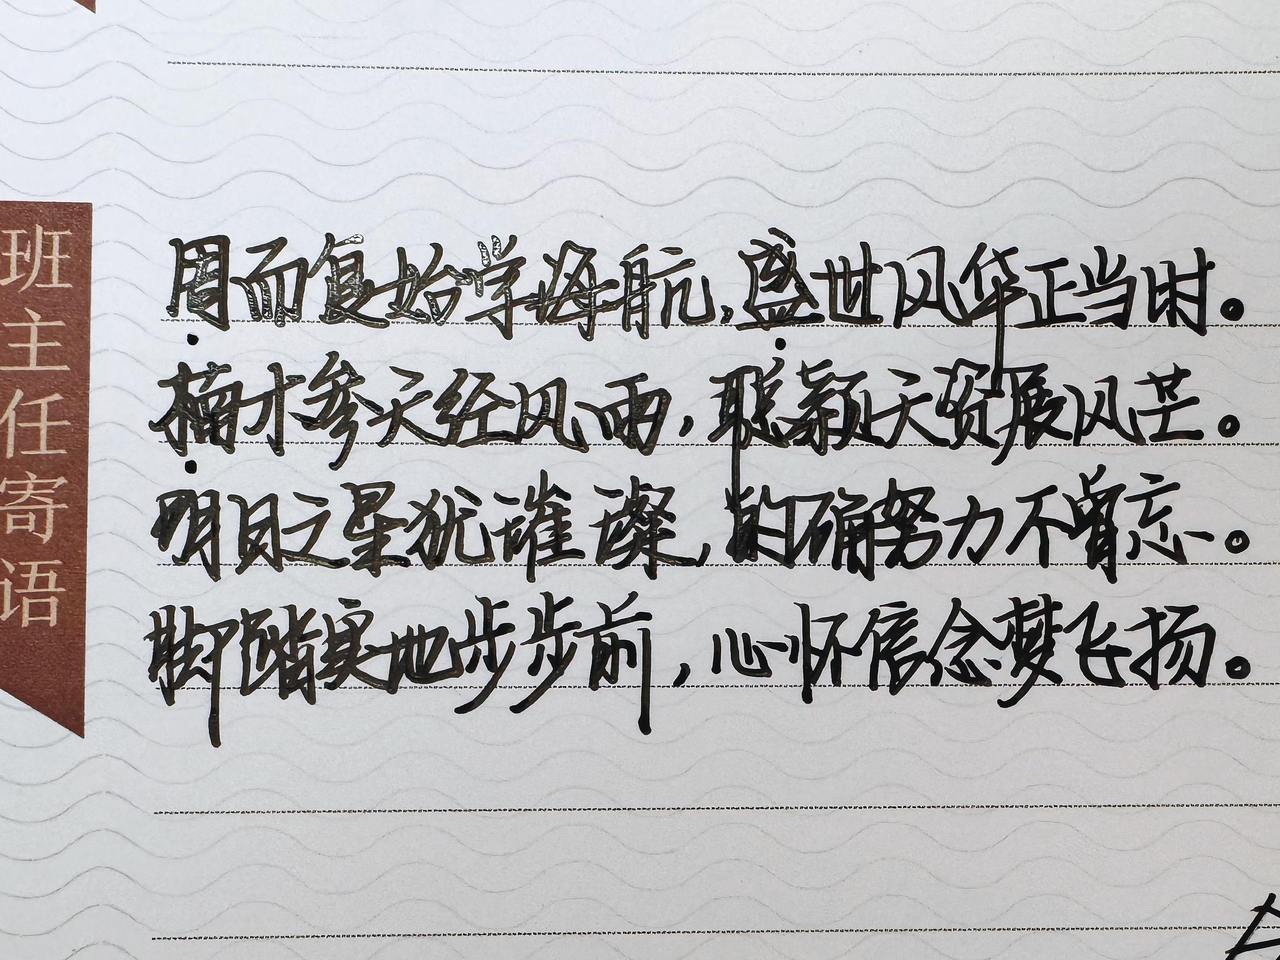 班主任寄语
周而复始学海航，盛世风华正当时。
楠才参天经风雨，聪颖天资展风芒。
明日之星犹璀璨，的确努力不曾忘。
脚踏实地步步前，心怀信念梦飞扬。